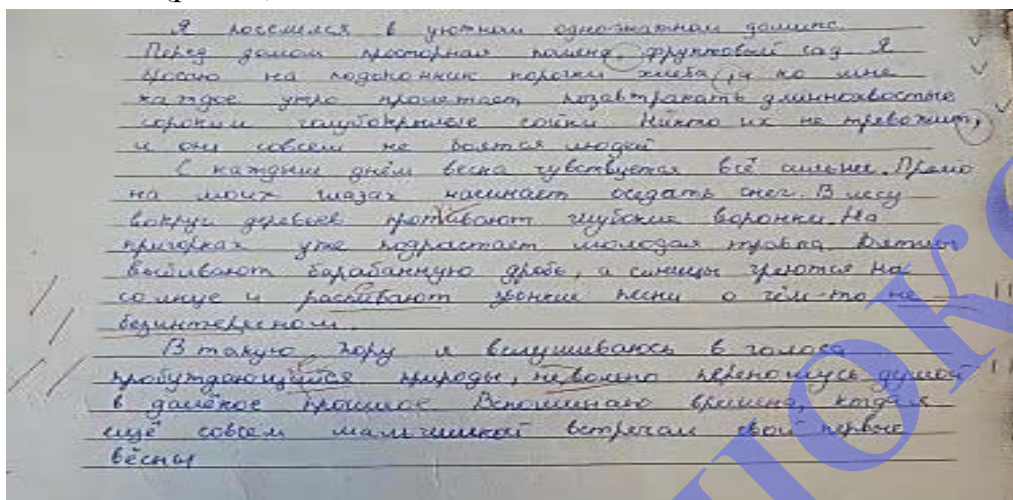 Я поселился в уютном одноэтажном домике.
Перед домом просторная поляна, фруктовый сад Я
бросаю на подоконник корочки хлеба, и ко мне
каждое утро прилетают позавтракать длиннохвостые
сороки и голубокрылые сойки Никто их не тревожит,
и они совсем не боятся людей
С каждым днём весна чувствуется всё сильнее. Прямо
на моих глазах начинает оседать снег. В лесу
вокруг деревьев протаивают глубокие воронки. На
пригорках уже подрастает молодая травка. Дятлы
выбивают барабанную дробь, а синицы греются на
солнце и распивают звонкие песни о чём-то не
безинтересном.
В такую пору я вслушиваюсь в голоса
пробуждающийся природы, невольно переношусь душой
в далёкое прошлое. Вспоминаю времена, когда я
ещё совсем мальчишкой встречал свои первые
вёсны